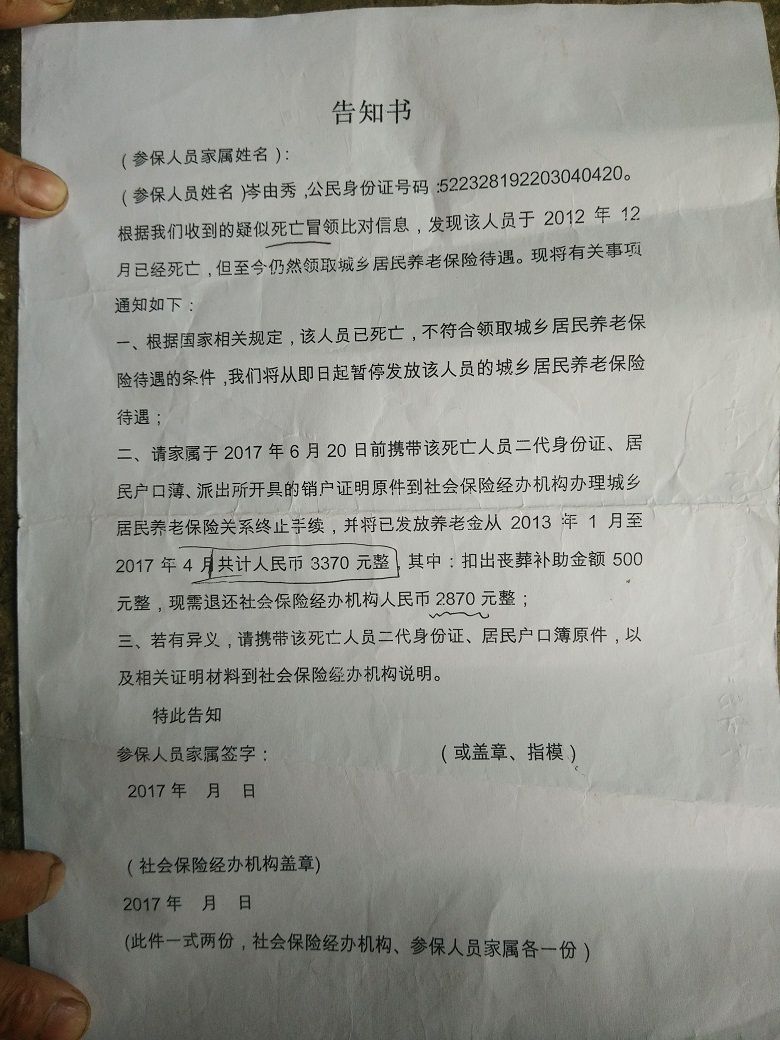 告知书
（参保人员家属姓名）：
（参保人员姓名）岑由秀，公民身份证号码：522328192203040420。
根据我们收到的疑似死亡冒领比对信息，发现该人员于 2012 年 12
月已经死亡，但至今仍然领取城乡居民养老保险待遇。现将有关事项
通知如下：
一、根据国家相关规定，该人员已死亡，不符合领取城乡居民养老保
险待遇的条件，我们将从即日起暂停发放该人员的城乡居民养老保险
待遇；
二、请家属于 2017 年 6 月 20 日前携带该死亡人员二代身份证、居
民户口薄、派出所开具的销户证明原件到社会保险经办机构办理城乡
居民养老保险关系终止手续，并将已发放养老金从 2013 年 1 月至
2017 年 4 月共计人民币 3370 元整，其中：扣出丧葬补助金额 500
元整，现需退还社会保险经办机构人民币 2870 元整；
三、若有异义，请携带该死亡人员二代身份证、居民户口簿原件，以
及相关证明材料到社会保险经办机构说明。
特此告知
参保人员家属签字：（或盖章、指模）
2017 年 月 日
（社会保险经办机构盖章）
2017 年 月 日
（此件一式两份，社会保险经办机构、参保人员家属各一份）